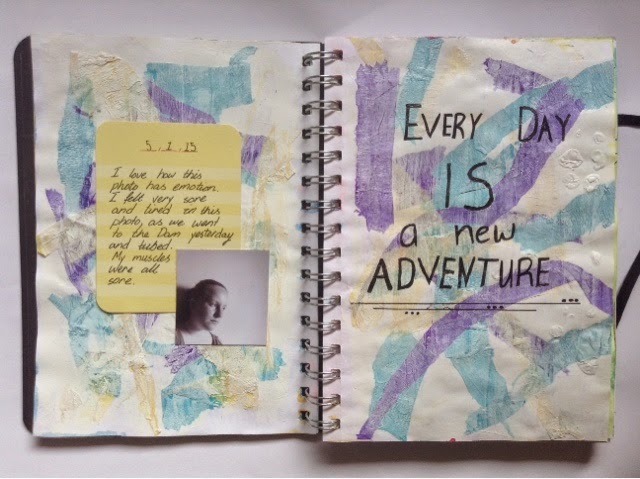 5.1.15
I love how this
photo has emotion.
I felt very sore
and tired in this
photo, as we went
to the Dam yesterday
and tubed.
My muscles
were all
sore.
EVERY DAY
IS
a new
ADVENTURE